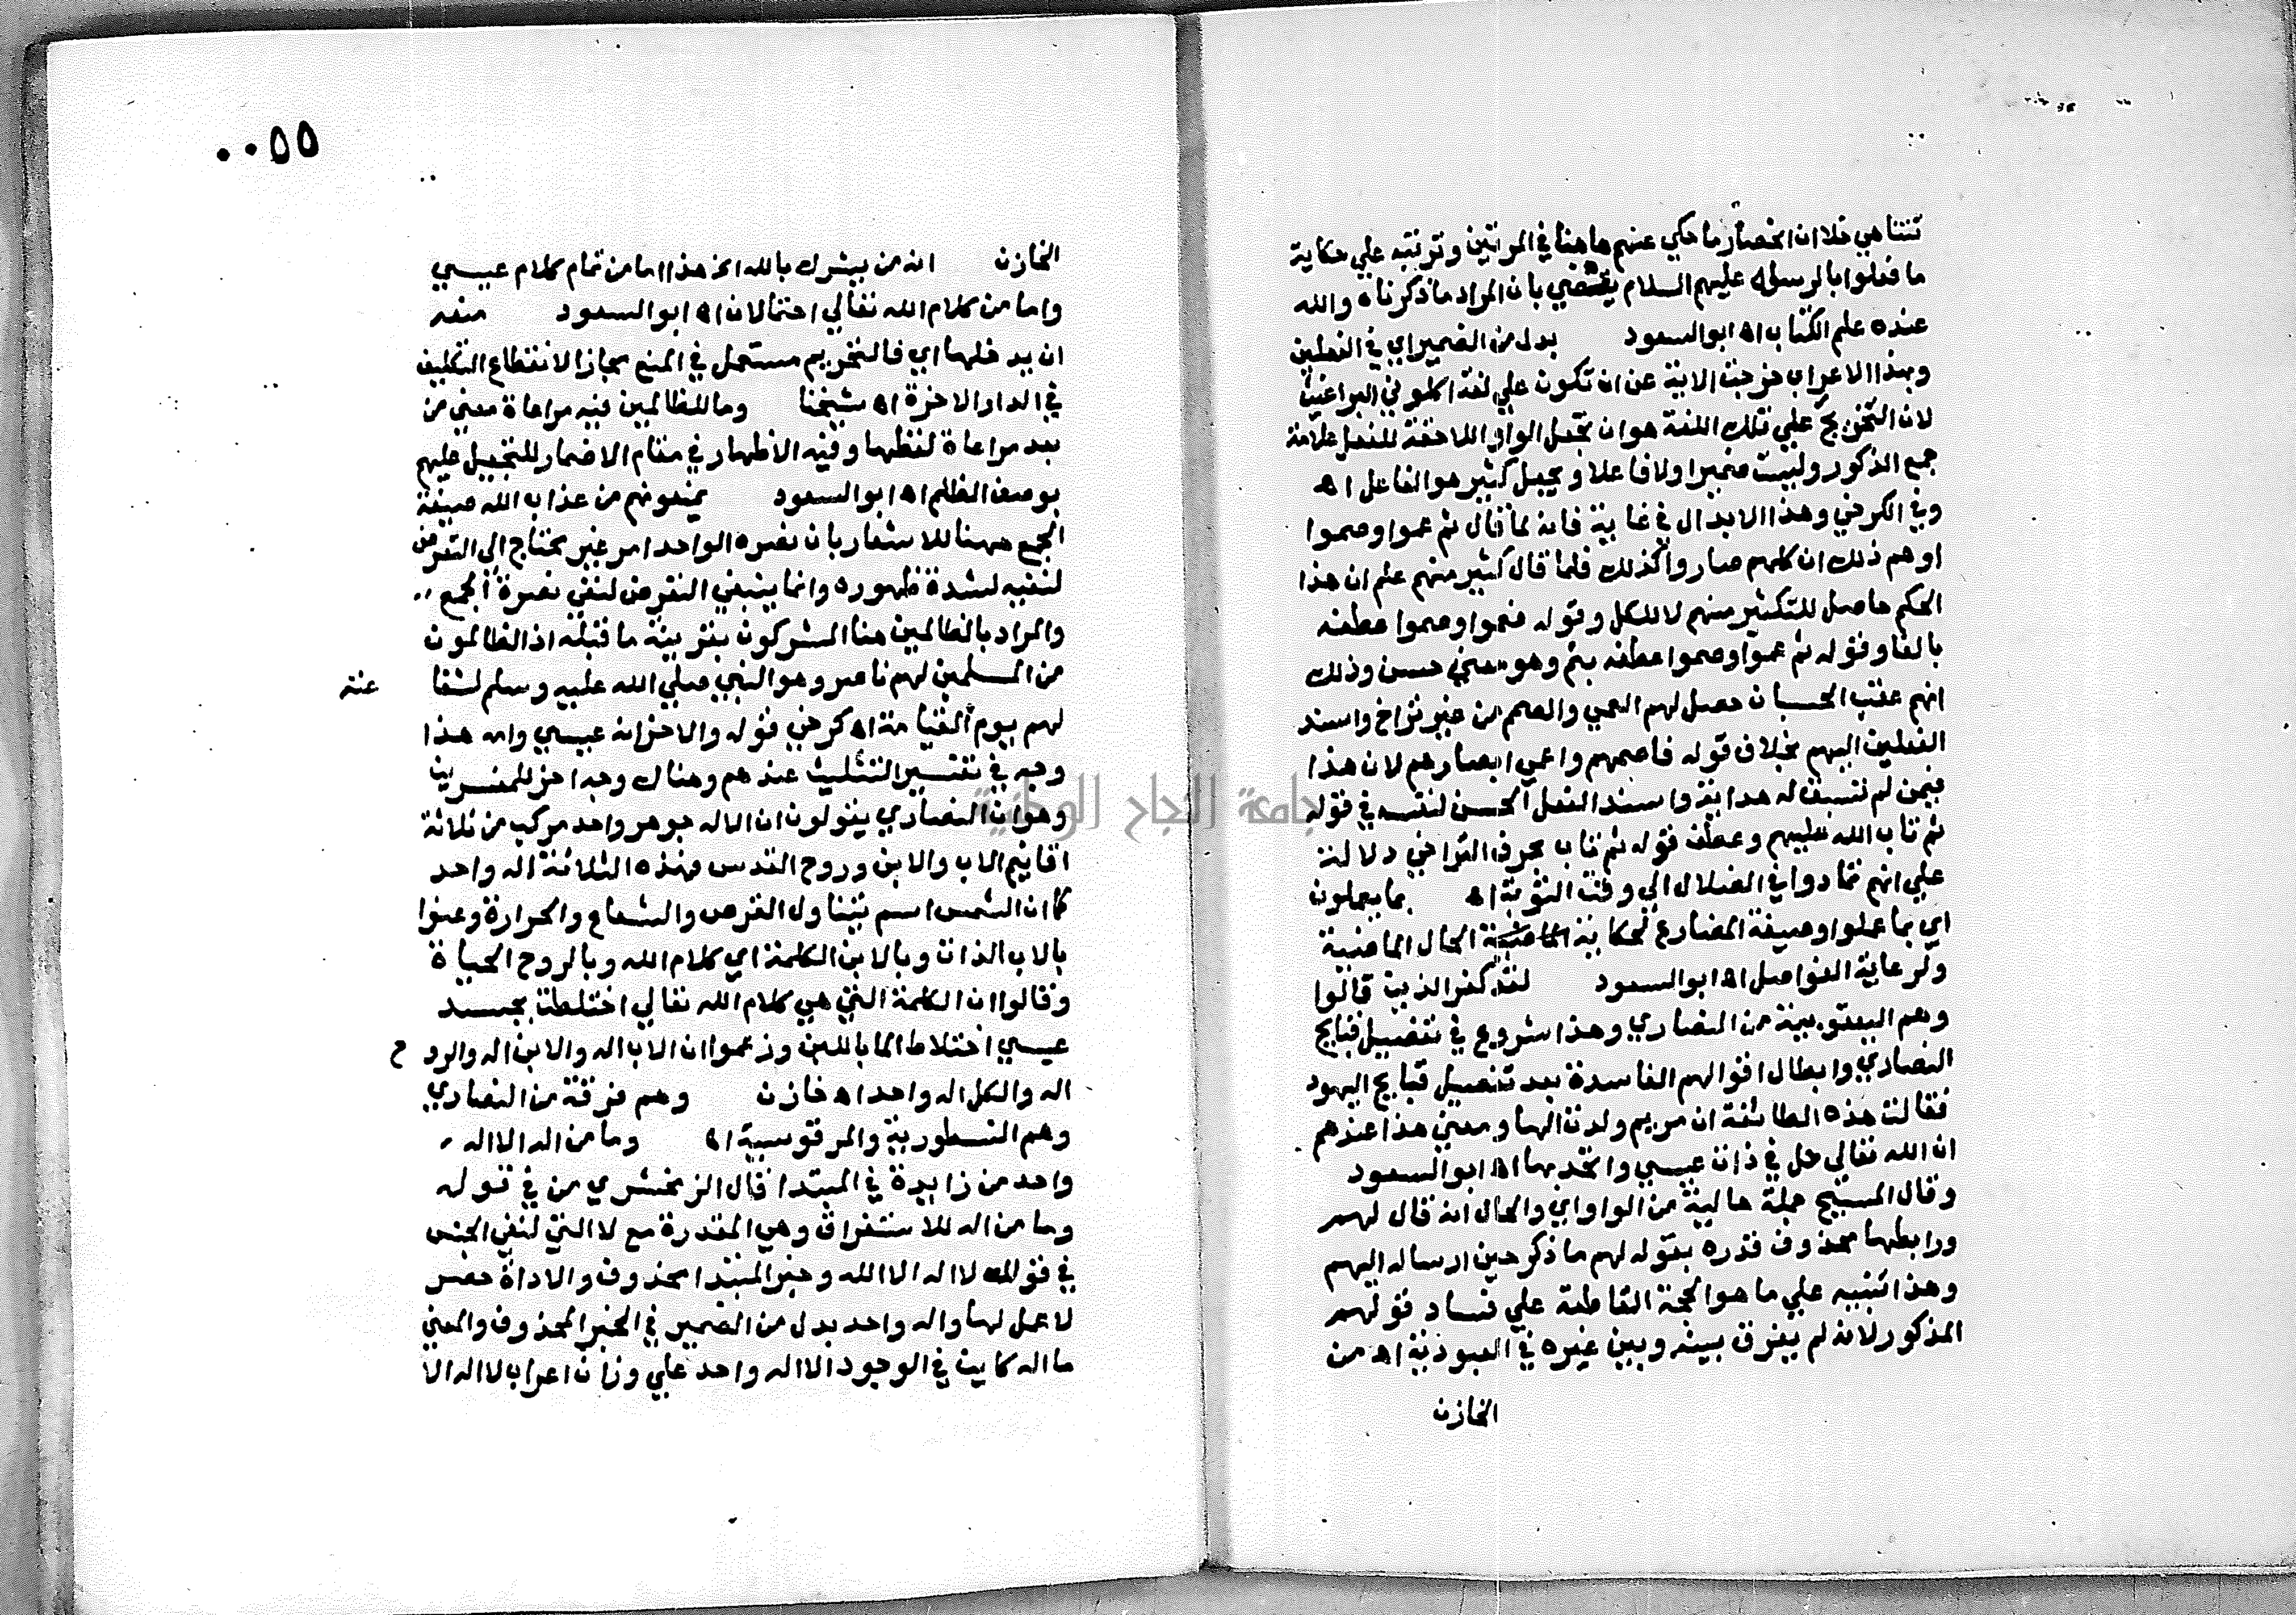 تتناهي خلا ان انحصار ما حكي عنهم هاهنا في المرتين وترتبه علي حكاية
ما فعلوا بالرسول عليهم السلام يقضي بان المراد ما ذكرناه والله
عنده علم الكتاب اه ابو السعود بدل من الضمير اي في الفعلين
وبهذا الاعراب خرجت الاية عن ان تكون علي لغة اكلوني البراغيث
لان التخريج علي تلك اللغة هو ان تجعل الواو اللاحقة للفعل علامة
جمع الذكور وليست ضميرا ولا فاعلا ويجعل كثير هو الفاعل اه
وفي الكرخي وهذا الابدال في غاية فانه لما قال ثم عموا وصموا
اوهم ذلك ان كلهم صاروا كذلك فلما قال كثير منهم علم ان هذا
الحكم حاصل للتكثير منهم لا للكل وقوله فعموا وصموا عطفه
بالفا وقوله ثم عموا وصموا عطفه بثم وهو معني حسن وذلك
انهم عقب الحسبان حصل لهم العمي والصمم من غير تراخ واسند
الفعلين اليهم بخلاف قوله فاصمهم واعمي ابصارهم لان هذا
فيمن لم تسبق له هداية واسند الفعل الحسن لنفسه في قوله
ثم تاب الله عليهم وعطف قوله ثم تاب بحرف التراخي دلالة
علي انهم تمادوا في الضلال الي وقت التوبة اه بما يعملون
اي بما عملوا وصيغة المضارع لحكاية الحال الماضية
ولرعاية الفواصل اه ابو السعود لقد كفر الذين قالوا
وهم اليعقوبية من النصاري وهذا شروع في تفصيل قبايح
النصاري وابطال اقوالهم الفاسدة بعد تفصيل قبايح اليهود
فقالت هذه الطائفة ان مريم ولدت الها ومعني هذا عندهم
ان الله تعالي حل في ذات عيسي واتحد بها اه ابو السعود
وقال المسيح جملة حالية من الواو اي والحال انه قال لهم
ورابطها محذوف قدره بقوله لهم ما ذكر حين ارساله اليهم
وهذا تنبيه علي ما هو الحجة القاطعة علي فساد قولهم
المذكور لانه لم يفرق بينه وبين غيره في العبودية اه من
الخازن
٠٠٥٥
الخازن انه من يشرك بالله الخ هذا اما من تمام كلام عيسي
واما من كلام الله تعالي احتمالان اه ابو السعود منعه
ان يدخلها اي فالتحريم مستعمل في المنع مجازا لانقطاع التكليف
في الدار الاخرة اه شيخنا وما للظالمين فيه مراعاة معني من
بعد مراعاة لفظها وفيه الاظهار في مقام الاضمار للتجيل عليهم
بوصف الظلم اه ابو السعود يمنعونهم من عذاب الله صيغة
الجمع ههنا للاشعار بان نصره الواحد امر غير محتاج الي التعرض
لنفيه لشدة ظهوره وانما ينبغي التعرض لنفي نصرة الجمع
والمراد بالظالمين هنا المشركون بقرينة ما قبله اذ الظالمون
من المسلمين لهم ناصر وهو النبي صلي الله عليه وسلم لشفا عته
لهم يوم القيامة اه كرخي قوله والاخران عيسي وامه هذا
وجه في تفسير التثليث عندهم وهناك وجه اخر للمفسرين
وهو ان النصاري يقولون ان الاله جوهر واحد مركب من ثلاثة
اقانيم الاب والابن وروح القدس فهذه الثلاثة اله واحد
كما ان الشمس اسم يتناول القرص والشعاع والحرارة وعنوا
بالاب الذات وبالابن الكلمة اي كلام الله وبالروح الحياة
وقالوا ان الكلمة التي هي كلام الله تعالي اختلطت بجسد
عيسي اختلاط الما باللبن وزعموا ان الاب اله والابن اله والرو ح
اله والكل اله واحد اه خازن وهم فرقة من النصاري
وهم النسطورية والمرقوسية اه وما من اله الا اله
واحد من زايدة في المبتدا قال الزمخشري من في قوله
وما من اله للاستغراق وهي المقدرة مع لا التي لنفي الجنس
في قولك لا اله الا الله وخبر المبتدا محذوف والاداة حصر
لا عمل لها واله واحد بدل من الضمير في الخبر المحذوف والمعني
ما اله كاين في الوجود الا اله واحد علي وزان اعراب لا اله الا
جامعة النجاح الوطنية